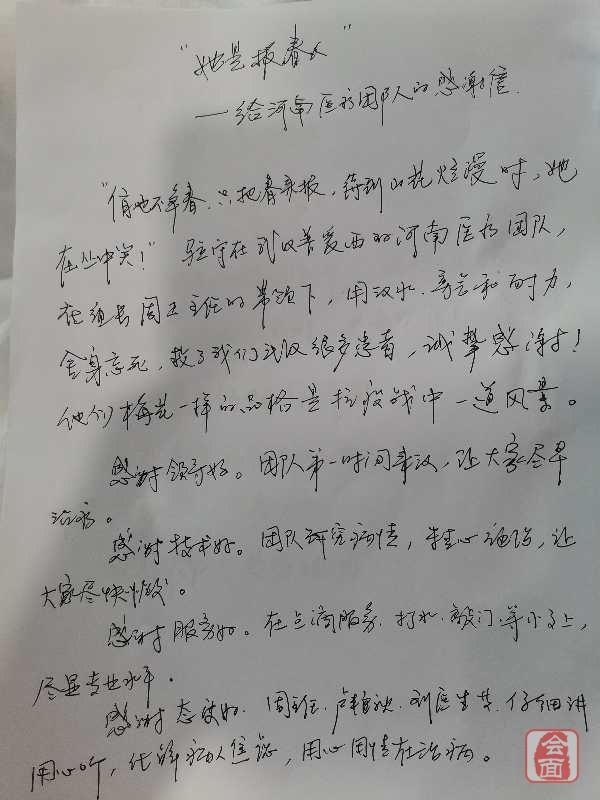 “她是报春人”
——给河南医疗团队的感谢信
“俏也不争春，只把春来报，待到山花烂漫时，她
在丛中笑！”驻守在武汉普爱西的河南医疗团队，
在组长周正主任的带领下，用汗水、奔忙和耐力，
舍身忘死，救了我们武汉很多患者，诚挚感谢！
他们梅花一样的品格是抗疫战中一道风景。
感谢领导好。团队第一时间来汉，让大家尽早
治病。
感谢技术好。团队研究病情，精心施治，让
大家尽快恢复。
感谢服务好。在点滴服务、打水、敲门等小事上，
尽显专业水平。
感谢态度好。周主任、刘医生等，仔细讲
用心听，化解病人焦虑，用心用情在治病。
会面